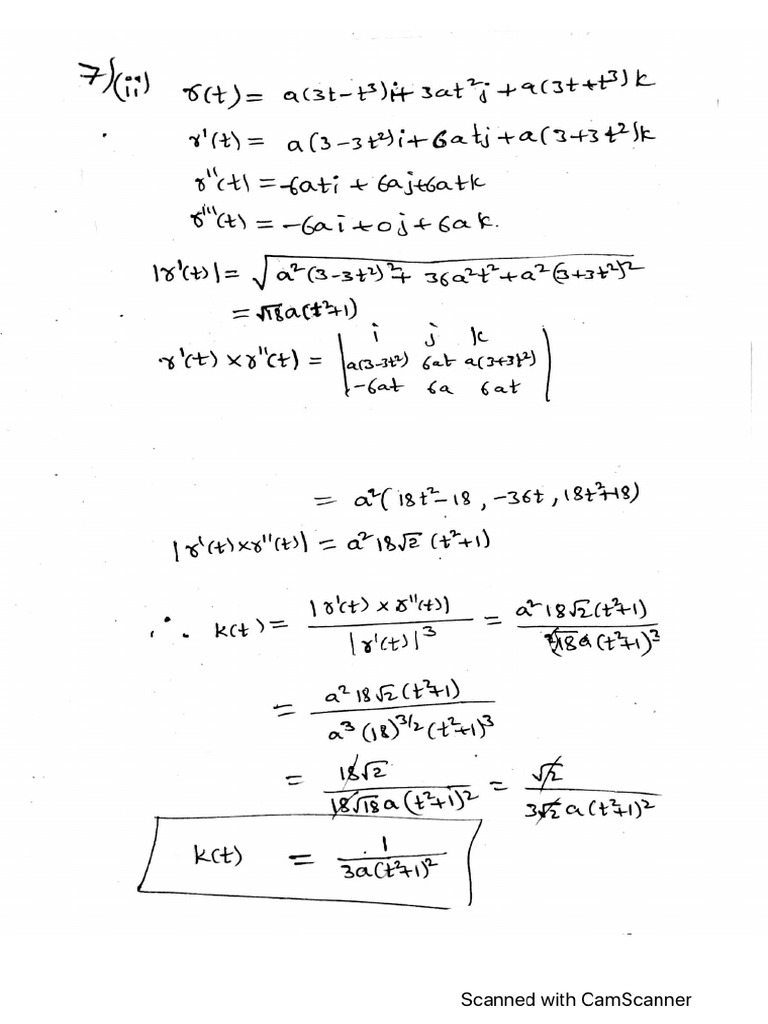 7)(ii) r(t) = a(3t-t³)i+ 3at²j + a(3t+t³)k
r'(t) = a(3-3t²)i + 6atj + a(3+3t²)k
r''(t) = -6ati + 6aj+6atk
r'''(t) = -6ai + 0j + 6ak.
|r'(t)| = √(a²(3-3t²)²+ 36a²t² + a²(3+3t²)²)
= √18a(t²+1)
r'(t) × r''(t) = | i j k
a(3-3t²) 6at a(3+3t²)
-6at 6a 6at |
= a²(18t²-18, -36t, 18t²+18)
|r'(t)×r''(t)| = a²18√2 (t²+1)
∴ k(t) = |r'(t) × r''(t)| / |r'(t)|³ = a²18√2(t²+1) / (√18a(t²+1)³
= a²18√2(t²+1) / a³(18)^3/2(t²+1)³
= 18√2 / 18√18a(t²+1)² = √2 / 3√2a(t²+1)²
k(t) = 1 / 3a(t²+1)²
Scanned with CamScanner